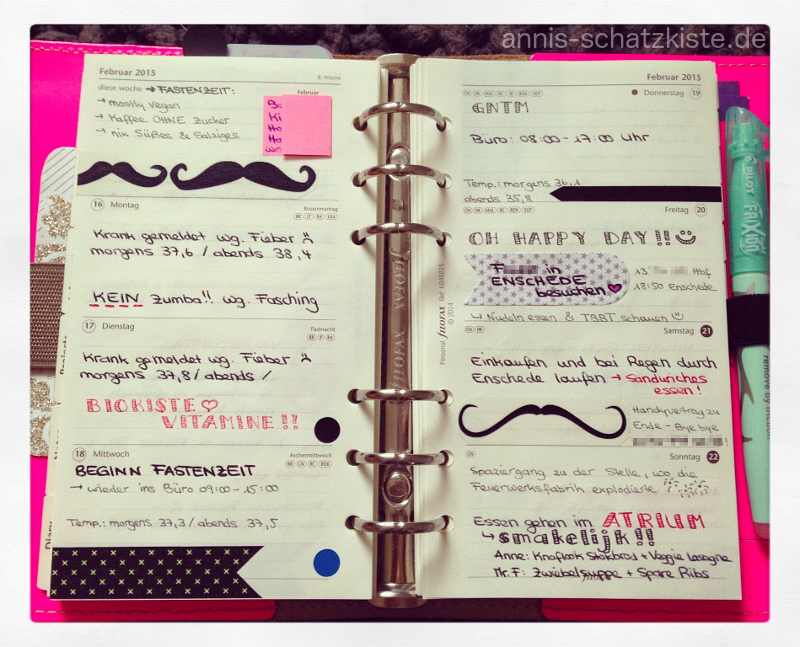 annis-schatzkiste.de
Februar 2015
8. Woche
diese woche → FASTENZEIT:
→ mostly vegan
→ Kaffee OHNE Zucker
→ nix Süßes & Salziges
Februar
Ki
Ha
16 Montag
Rosenmontag
Krank gemeldet wg. Fieber
morgens 37,6 / abends 38,4
KEIN Zumba!! wg. Fasching
17 Dienstag
Fastnacht
Krank gemeldet wg. Fieber
morgens 37,8 / abends /
BIOKISTE♡
VITAMINE!!
18 Mittwoch
Aschermittwoch
BEGINN FASTENZEIT
→ wieder ins Büro 09:00-15:00
Temp.: morgens 37,3 / abends 37,5
FILOFAX
FILOFAX
Personal FILOFAX Ref. 6845815
© 2014
Februar 2015
Donnerstag 19
GNTM
Büro: 08:00-17:00 Uhr
Temp.: morgens 36,1
abends 35,8
Freitag 20
OH HAPPY DAY!!☺
F in
ENSCHEDE
besuchen♥
13 Hbf
18:50 Enschede
↳ Nudeln essen & TBBT schauen ☺
Samstag 21
Einkaufen und bei Regen durch
Enschede laufen → Sandwiches
essen!
Handyvertrag zu
Ende - Bye bye
Sonntag 22
Spaziergang zu der Stelle, wo die
Feuerwerksfabrik explodierte
Essen gehen im ATRIUM
↳ smakelijk!!
Anne: Knoflook Stokbrod + Veggie Lasagne
Mr. F: Zwiebelsuppe + Spare Ribs
PILOT
FRIXION
remove by friction